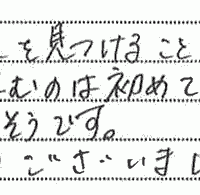 を見つけること
むのは初めて
そうです。
ございまし